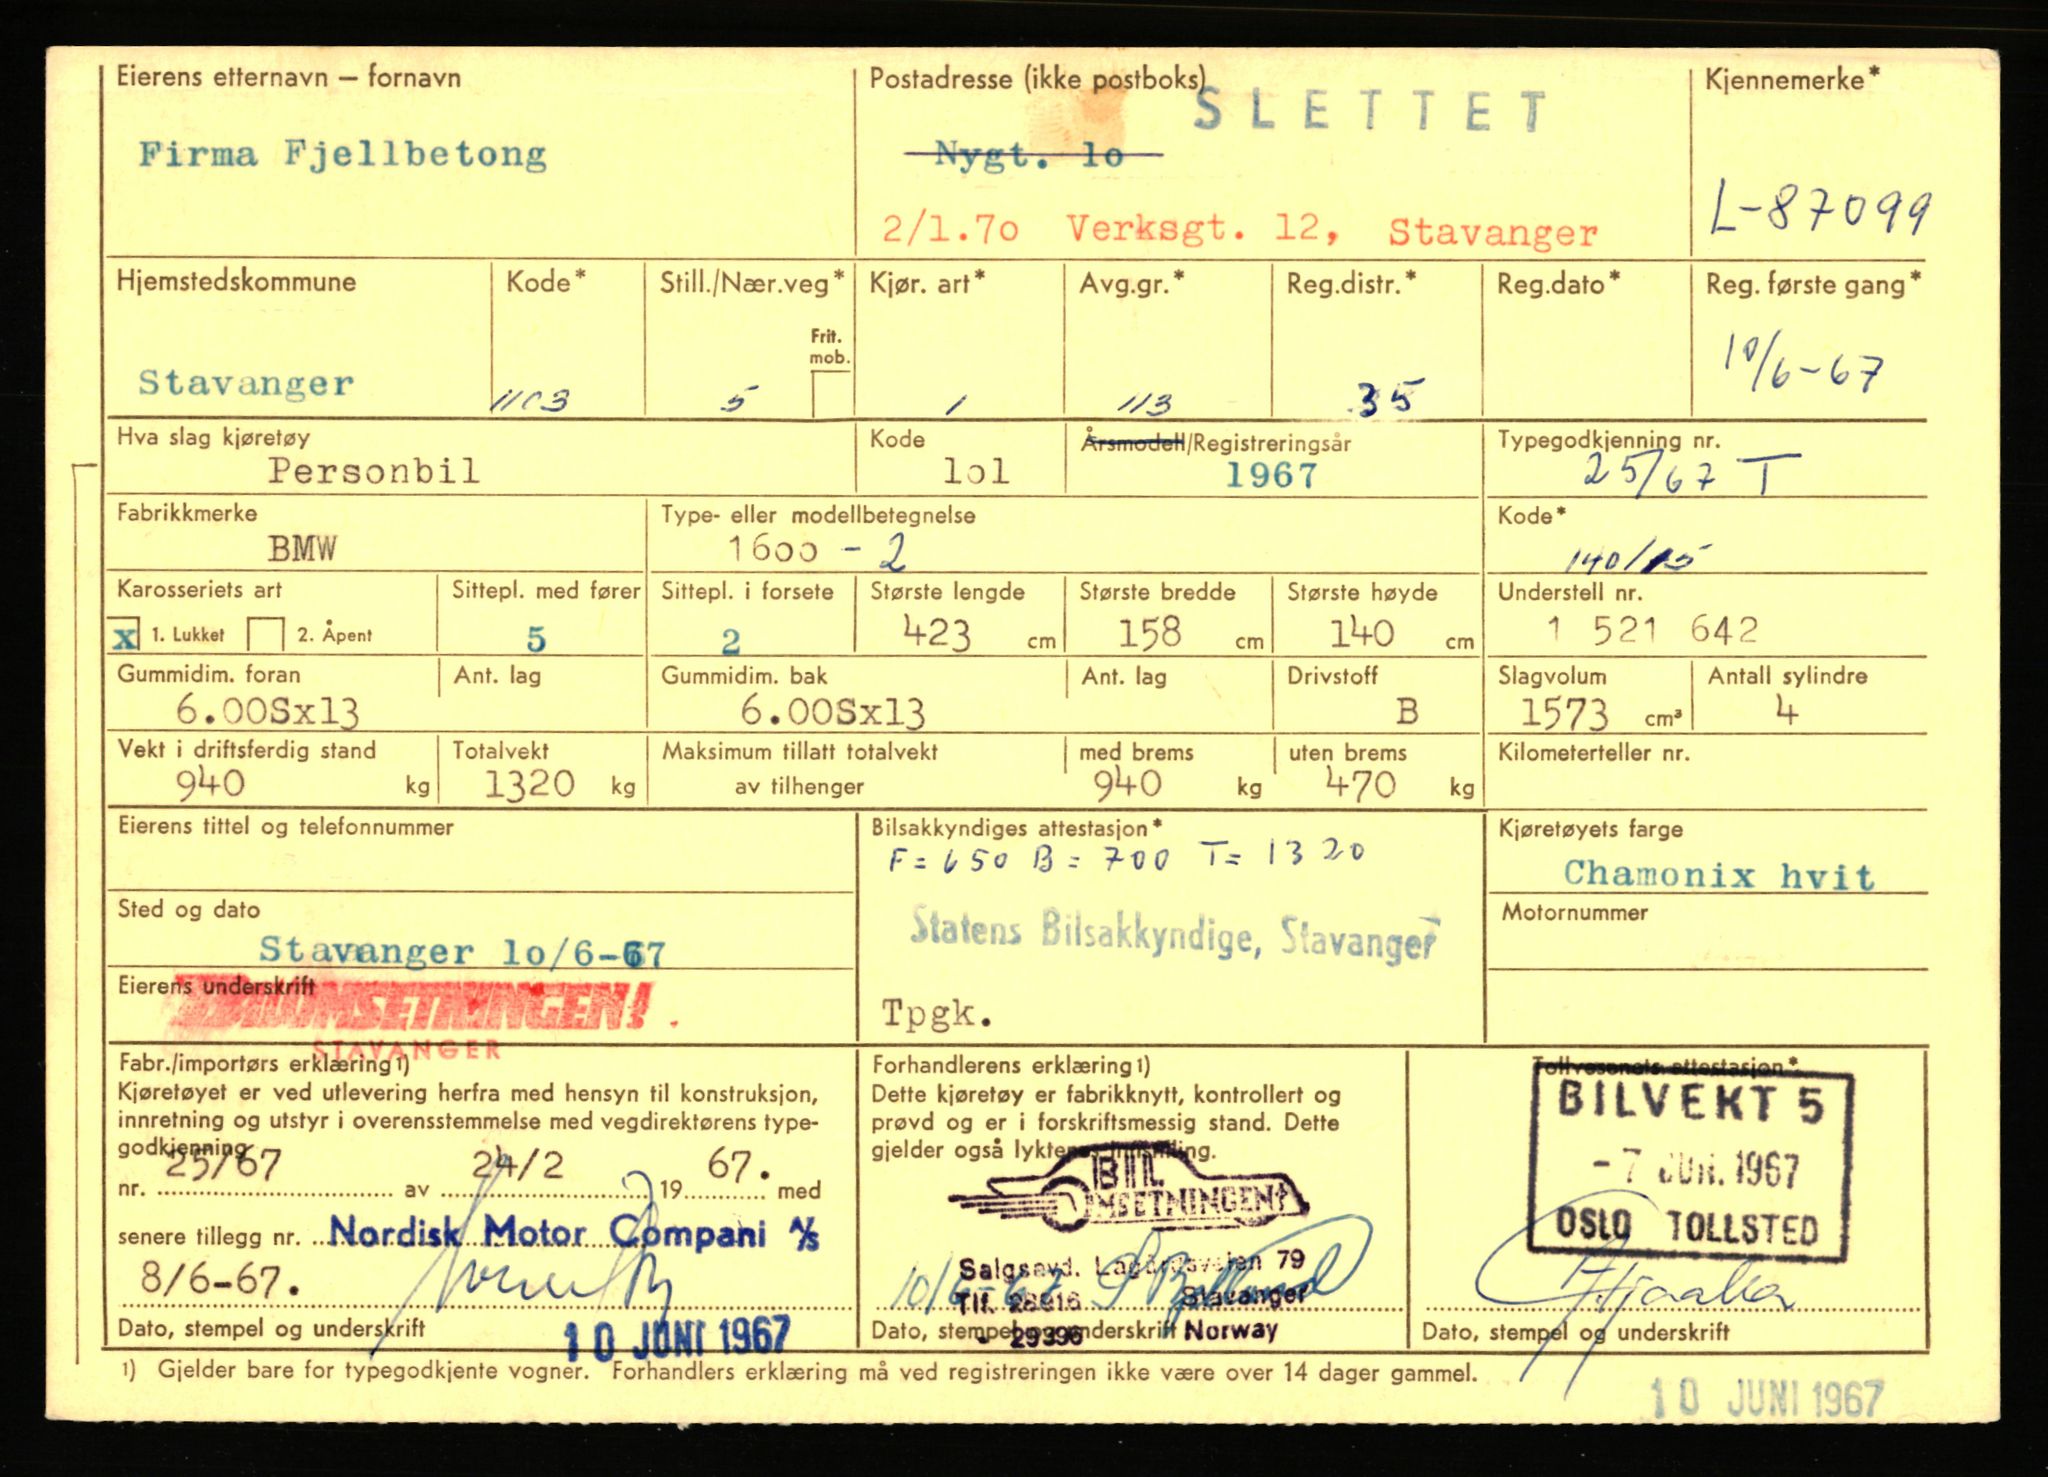 Eierens etternavn – fornavn
Firma Fjellbetong
Postadresse (ikke postboks)
SLETTET
Nygt. lo
2/1.7o Verksgt. 12, Stavanger
Kjennemerke*
L-87099
Hjemstedskommune
Stavanger
Kode*
1103
Still./Nær.veg*
Frit. mob.
5
Kjør. art*
1
Avg.gr.*
113
Reg.distr.*
35
Reg.dato*
Reg. første gang*
10/6-67
Hva slag kjøretøy
Personbil
Kode
lol
Årsmodell/Registreringsår
1967
Typegodkjenning nr.
25/67 T
Fabrikkmerke
BMW
Type- eller modellbetegnelse
16oo - 2
Kode*
140/15
Karosseriets art
x 1. Lukket 2. Åpent
Sittepl. med fører
5
Sittepl. i forsete
2
Største lengde
423 cm
Største bredde
158 cm
Største høyde
140 cm
Understell nr.
1 521 642
Gummidim. foran
6.00Sx13
Ant. lag
Gummidim. bak
6.00Sx13
Ant. lag
Drivstoff
B
Slagvolum
1573 cm³
Antall sylindre
4
Vekt i driftsferdig stand
940 kg
Totalvekt
1320 kg
Maksimum tillatt totalvekt
av tilhenger
med brems
940 kg
uten brems
470 kg
Kilometerteller nr.
Eierens tittel og telefonnummer
Bilsakkyndiges attestasjon*
F= 650 B= 700 T= 1320
Statens Bilsakkyndige, Stavanger
Tpgk.
Kjøretøyets farge
Chamonix hvit
Sted og dato
Stavanger lo/6-67
Motornummer
Eierens underskrift
BILOMSETNINGEN!
STAVANGER
Fabr./importørs erklæring 1)
Kjøretøyet er ved utlevering herfra med hensyn til konstruksjon,
innretning og utstyr i overensstemmelse med vegdirektørens type-
godkjenning
nr. 25/67 av 24/2 19 67. med
senere tillegg nr. Nordisk Motor Compani A/S
8/6-67.
Dato, stempel og underskrift
10 JUNI 1967
Forhandlerens erklæring 1)
Dette kjøretøy er fabrikknytt, kontrollert og
prøvd og er i forskriftsmessig stand. Dette
gjelder også lyktenes innstilling.
BIL
OMSETNINGEN!
Salgsavd. Lagårdsveien 79
10/6-67
Tlf. 28616 Stavanger
- 29396 Norway
Dato, stempel og underskrift
Tollvesenets attestasjon*
BILVEKT 5
- 7 JUN. 1967
OSLO TOLLSTED
Dato, stempel og underskrift
1) Gjelder bare for typegodkjente vogner. Forhandlers erklæring må ved registreringen ikke være over 14 dager gammel.
10 JUNI 1967